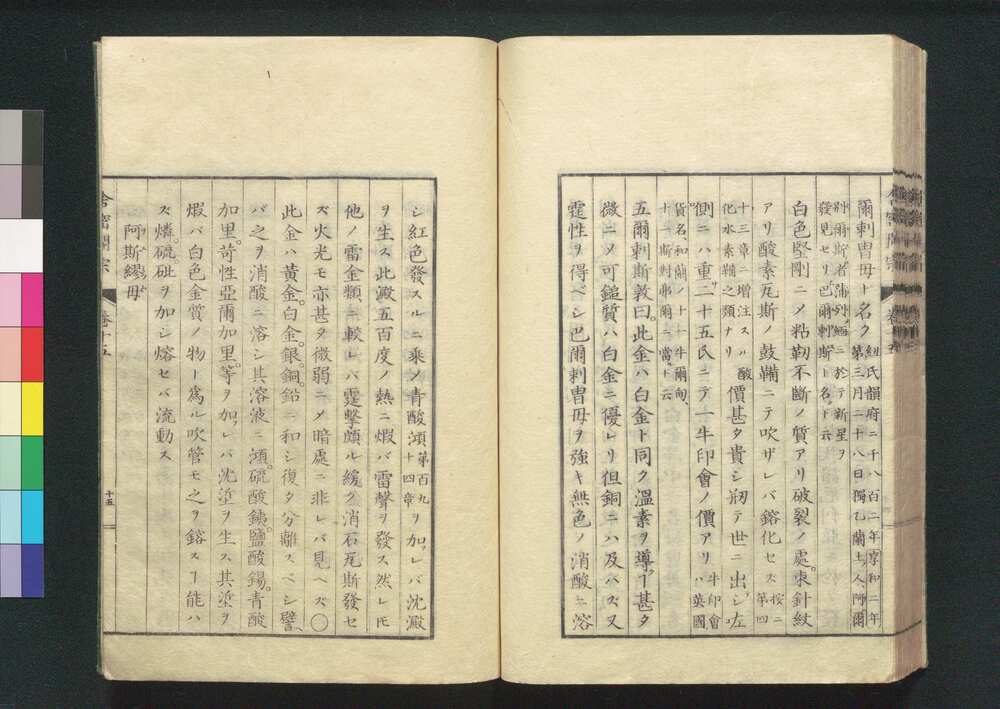 爾剌曺母ト名ク 紐氏韻府ニ千八百二年享和二年
第三月二十八日獨乙蘭土人、阿爾
別爾斯者蒲列緬ニ於テ新星ヲ
發見セリ巴爾剌斯ト名ト云
白色堅剛ニメ粘靭不斷ノ質アリ破裂ノ處。束針紋
アリ酸素瓦斯ノ鼓鞴ニテ吹ザレバ鎔化セス 按ニ
第四
十三章ニ増注スル酸
化水素鞴之類ナリ 價甚タ貴シ刱テ世ニ出シ左
側ニハ重二十五氏ニテ一牛印會ノ價アリ 牛印會
ハ英國
貨名和蘭ノ十一牛爾甸
十一斯對弗爾ニ當ト云
五爾剌斯敦曰。此金ハ白金ト同ク溫素ヲ導ヿ甚タ
微ニメ可鎚質ハ白金ニ優レリ但銅ニハ及バズ又
霆性ヲ得ベシ巴爾剌曺母ヲ強キ無色ノ消酸ニ溶
シ紅色發スルニ乘ノ青酸澒 第百九
十四章 ヲ加レバ沈澱
ヲ生ス此澱五百度ノ熱ニ煆バ雷聲ヲ發ス然レ𪜈
他ノ雷金類ニ較レバ霆擊頗ル緩ク消石瓦斯發セ
ズ火光モ亦甚タ微弱ニメ暗處ニ非レバ見ヘズ〇
此金ハ黃金。白金。銀。銅。鉛ニ和シ復タ分離スベシ譬
バ之ヲ消酸ニ溶シ其溶液ニ澒。硫酸銕。鹽酸錫。青酸
加里。苛性亞爾加里。等ヲ加レバ沈埿ヲ生ス其埿ヲ
煆バ白色金質ノ物ト爲ル吹管モ之ヲ鎔スヿ能ハ
ズ燐。硫。砒ヲ加シ熔セバ流動ス
阿斯繆母
舎密開宗 卷十五
十五